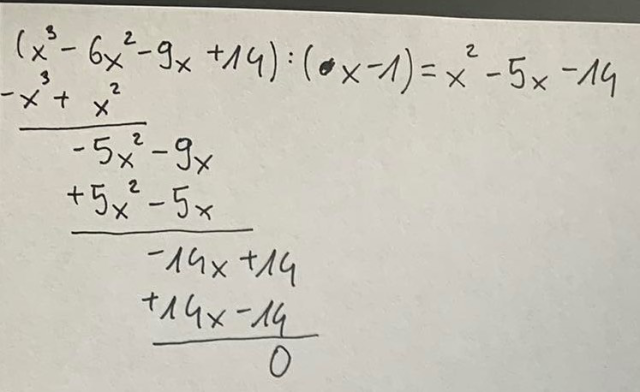 (x³ - 6x² - 9x + 14) : (x - 1) = x² - 5x - 14
-x³ + x²
-5x² - 9x
+5x² - 5x
-14x + 14
+14x - 14
0